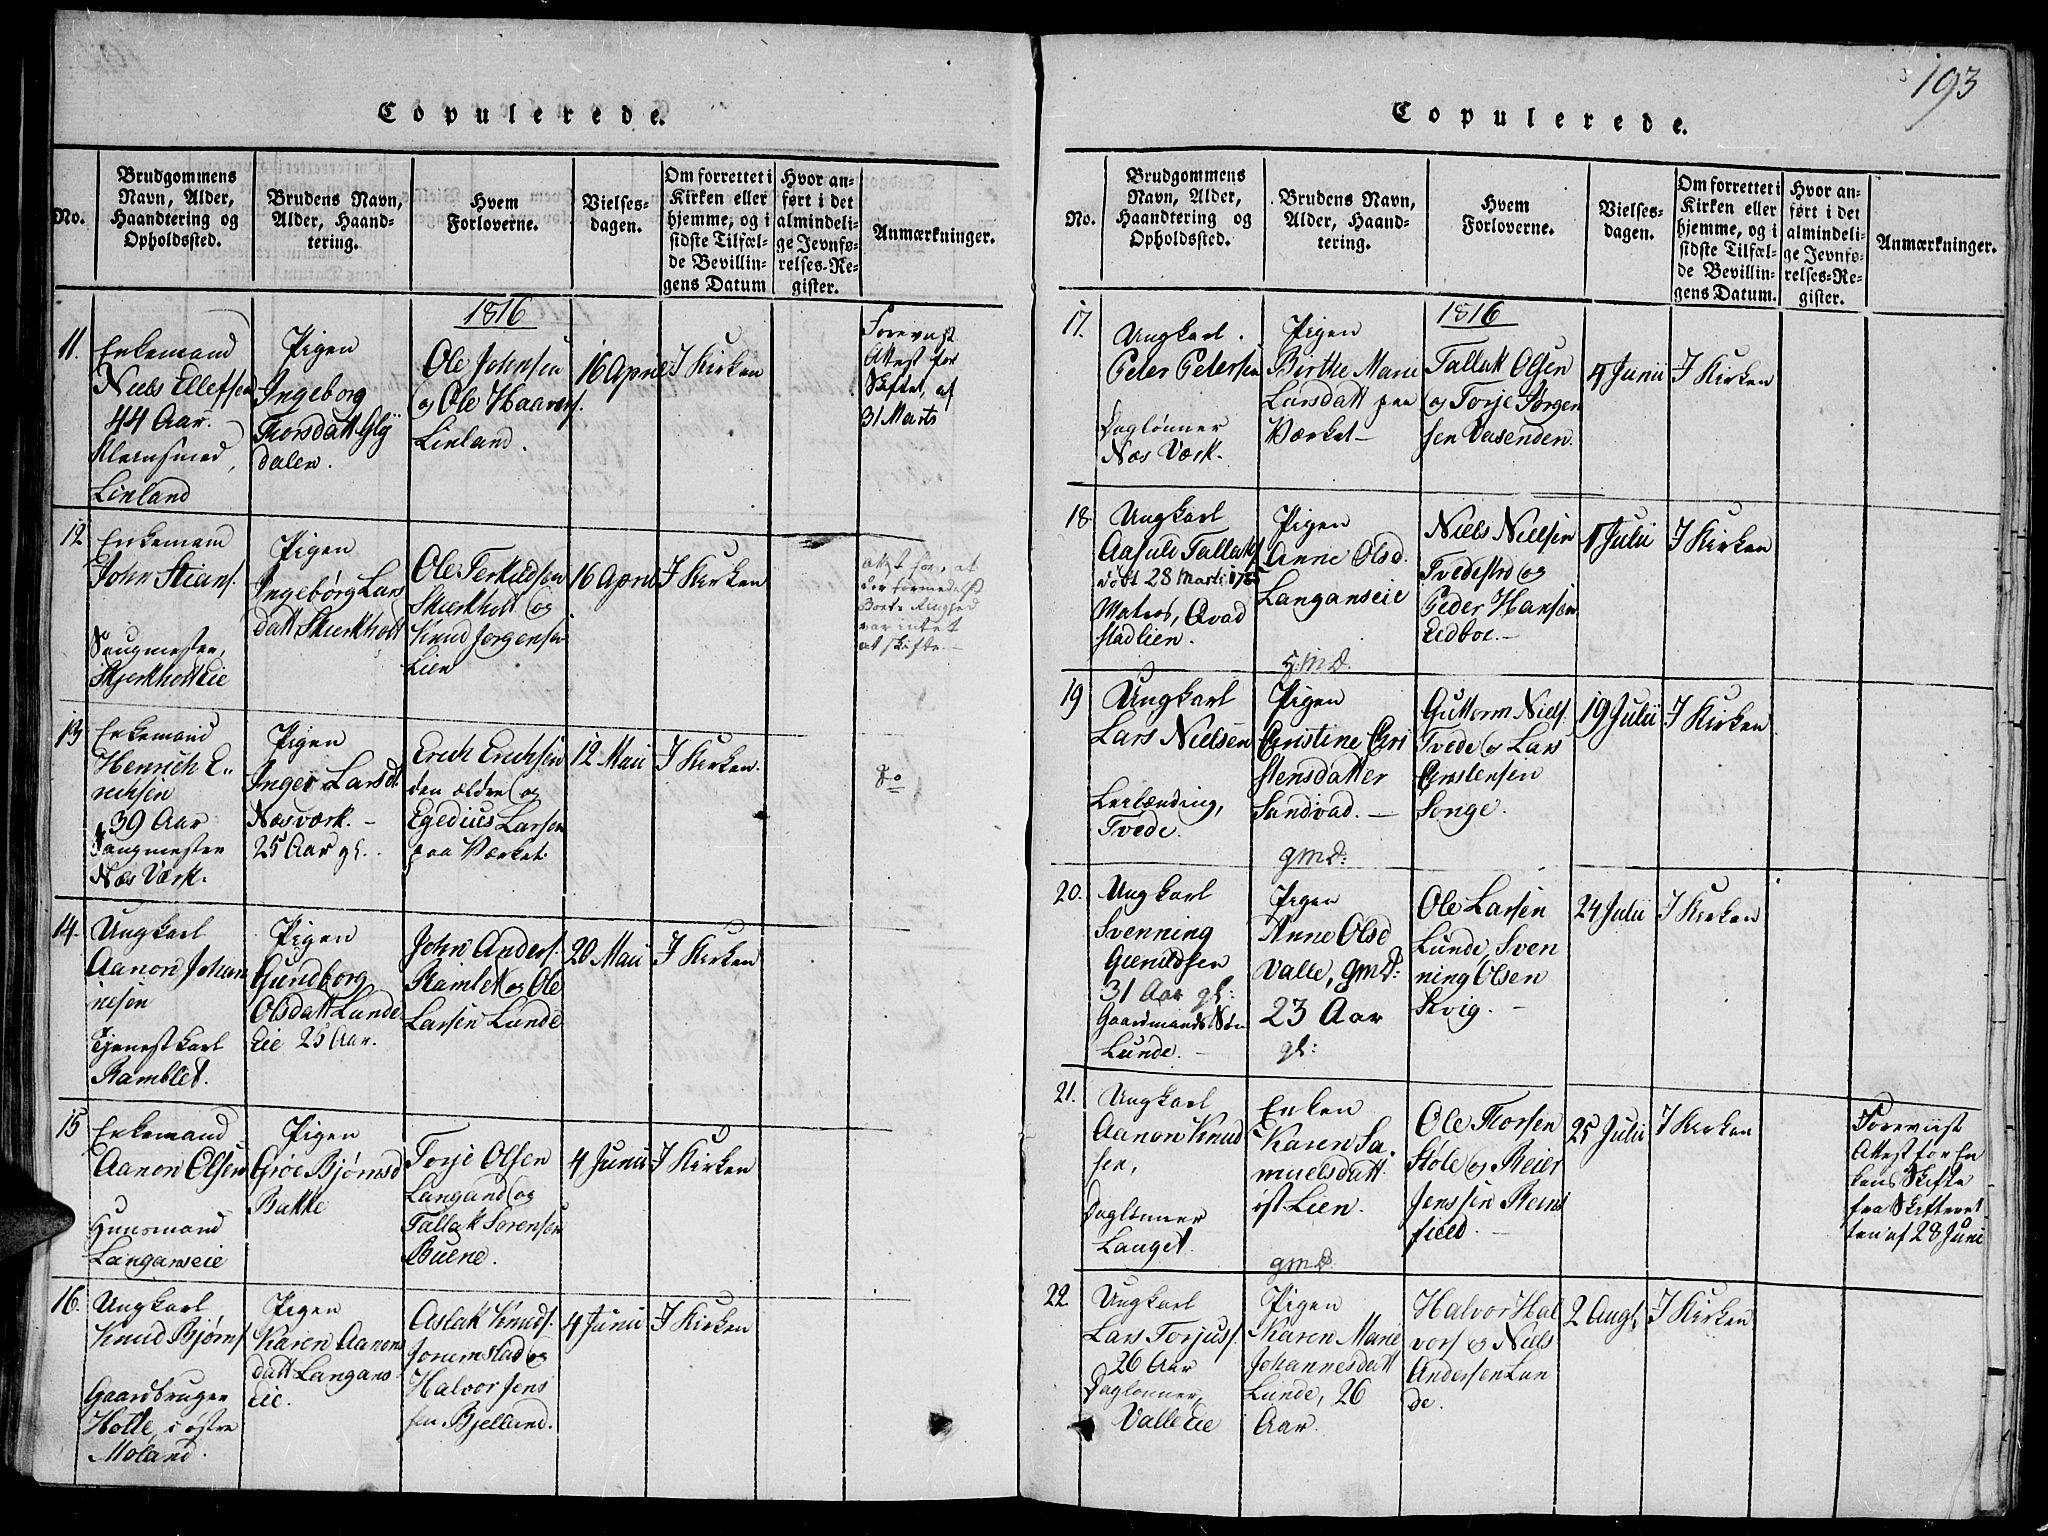 Copulerede.
No.
Brudgommens
Navn, Alder,
Haandtering og
Opholdssted.
Brudens Navn,
Alder, Haand-
tering.
Hvem
Forloverne.
Vielses-
dagen.
Om forrettet i
Kirken eller
hjemme, og i
sidste Tilfæl-
de Bevillin-
gens Datum
Hvor an-
ført i det
almindeli-
ge Jevnfø-
relses-Re-
gister.
Anmærkninger.
1816
11.
Enkemand
Niels Ellefsen
44 Aar.
Kleinsmed,
Linland
Pigen
Ingeborg
Thorsdatt Gly
dalen.
Ole Johnsen
og Ole Haavers.
Linland.
16 April
I Kirken
Forevist
Attest for
Skiftet, af
31 Marts
12
Enkemand
John Stians.
Saugmester,
Skjerkholt Eie
Pigen
Ingebørg Lars
datt Skierkholt
Ole Terkildsen
Skierkholt og
Knud Jørgensen
Lien
16 April
I Kirken
Attest for, at
der formedelst
Boets Ringhed
var intet
at skifte.
13
Enkemand
Henrich E..
richsen
39 Aar
Saugmester
Næs Værk.
Pigen
Inger Larsdt
Næsværk. –
25 Aar gl.
Erich Erichsen
den ældre og
Egedius Larsen
paa Værket.
12 Maii
I Kirken.
do
14.
Ungkarl
Aanon Johan
nesen
Tjenestkarl
Ramblet.
Pigen
Gundborg
Olsdatt Lunde
Eie 25 Aar.
John Anders.
Ramlet og Ole
Larsen Lunde
20 Maii
I Kirken
15
Enkemand
Aanon Olsen
Huusmand
Langanseie
Pigen
Groe Bjørnsd
Bakke
Torje Olsen
Langand og
Tallak Sørensen
Buene.
4 Junii
I Kirken
16.
Ungkarl
Knud Bjørns.
Gaardbruger
Holte, i østre
Moland.
Pigen
Karen Aanons
datt Langans
Eie.
Aslak Knuds.
Jorumstad og
Halvor Jens
sen Bjelland.
4 Junii
I Kirken
193
Copulerede.
No.
Brudgommens
Navn, Alder,
Haandtering og
Opholdssted.
Brudens Navn,
Alder, Haand-
tering.
Hvem
Forloverne.
Vielses-
dagen.
Om forrettet i
Kirken eller
hjemme, og i
sidste Tilfæl-
de Bevillin-
gens Datum.
Hvor an-
ført i det
almindeli-
ge Jevnfø-
relses-Re-
gister.
Anmærkninger.
1816
17.
Ungkarl.
Peter Petersen
Daglønner
Næs Værk.
Pigen
Birthe Marie
Larsdatt paa
Værket –
Tallak Olsen
og Torje Jørgen
sen Vasenden.
4 Junii
I Kirken
18.
Ungkarl
Aasuld Tallaks.
født 28 Marti
Matros, Qvad
stadlien.
Pigen
Anne Olsd.
Langanseie
Niels Nielsen
Tvedestrd og
Peder Hansen
Eidboe. –
1 Julii
I Kirken
19
Ungkarl
Lars Nielsen
Leilænding,
Tvede.
gmd.
Pigen
Christine Chri
stensdatter
Sandvad. –
Guttorm Niels.
Tvede og Lars
Christensen
Songe.
19 Julii
I Kirken
20.
Ungkarl
Svenning
Gunildsen
31 Aar gl:
Gaardmands Søn
Lunde. –
gmd:
Pigen
Anne Olsd
Valle, gmd:
23 Aar
gl:
Ole Larsen
Lunde, Sven
ning Olsen
Skvig. –
24 Julii
I Kirken
21.
Ungkarl
Aanon Knud
sen,
Daglønner
Langet.
Enken
Karen Sa,
muelsdatt
øst Lien.
Ole Thorsen
Støle og Reier
Jenssen Reins
field. –
25 Julii
I Kirken
Foreviist
Attest for En
kens Skifte
fra Skifteret
ten af 28 Juni
22
Ungkarl
Lars Torjuss.
26 Aar
Daglønner,
Valle Eie
gmd.
Pigen
Karen Marie
Johannesdatt
Lunde, 26
Aar.
Halvor Hal
vors og Niels
Andersen Lun
de.
2 Augs.
I Kirken